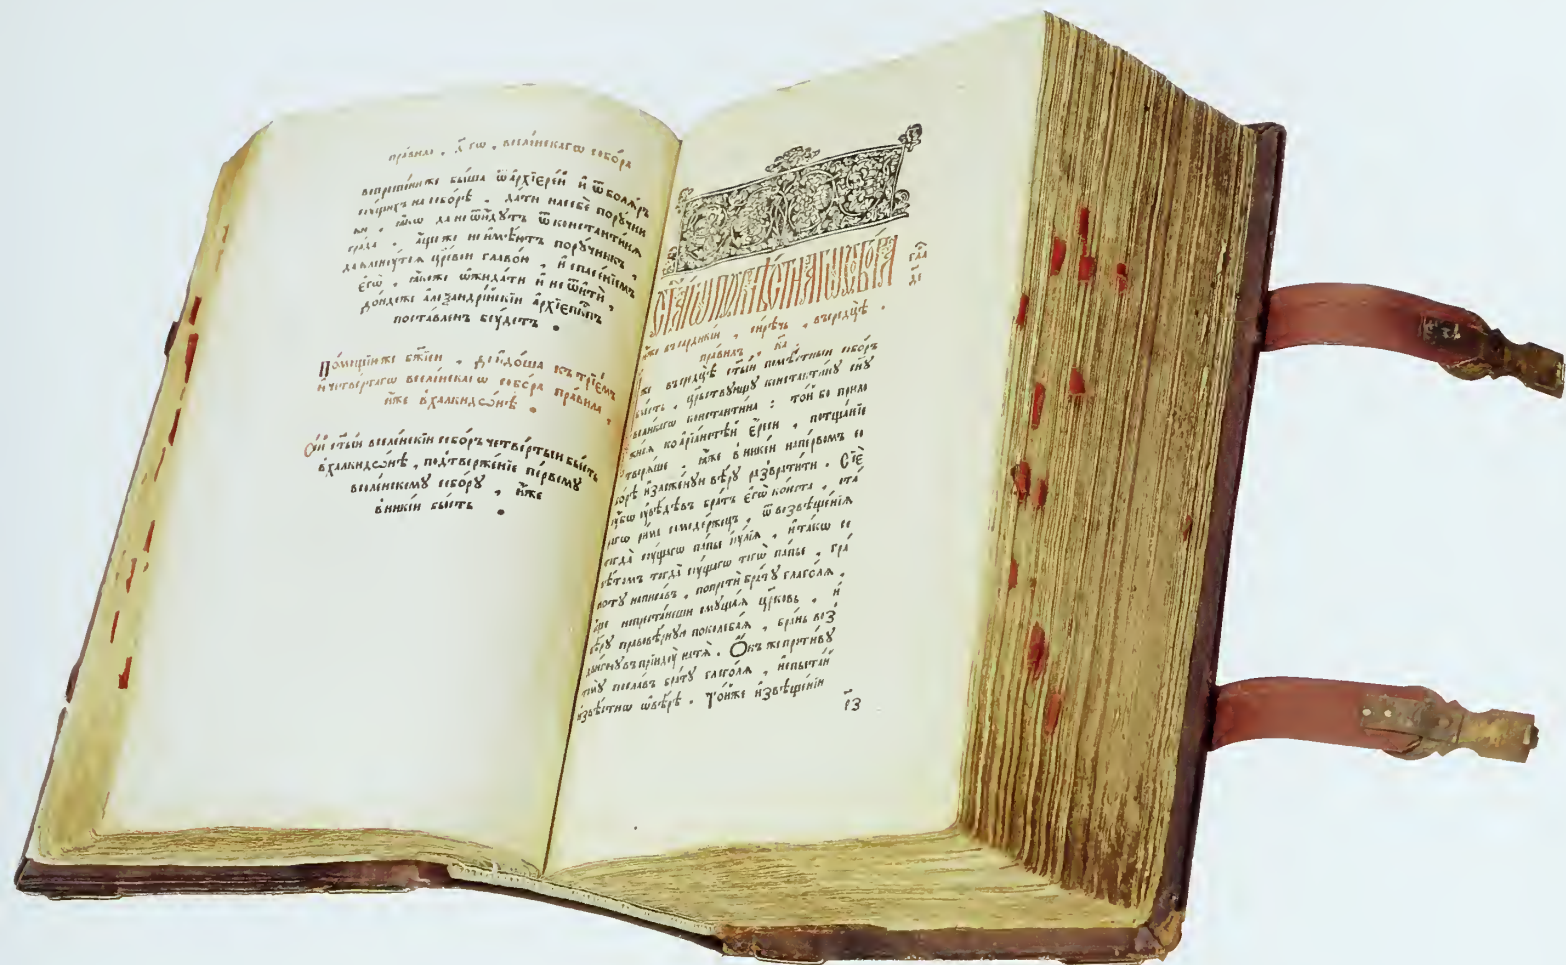 правила , д҃гѡ , вселе́нскагѡ собо́ра
вспреще́ниже бы́ша ѿ а҆рхїере́й и҆ ѿ боля́ръ
су́щихъ на собо́рѣ , да́ти на себѐ пору́чни
ки , ꙗ҆́кѡ да не ѿи́дутъ ѿ константи́нѧ
гра́да , а҆́ще же не и҆мѣ́ютъ пору́чникъ ,
да кляну́тсѧ цр҃вои главо́й , и҆ спасе́нїемъ
є҆гѡ̀ , ꙗ҆́коже ѡ҆жида́ти и҆ не ѿи́ти ,
до́ндеже а҆леѯандрі́йскїи а҆рхїєп҃кпъ
поста́вленъ бѹ́детъ .
По́мощїю же бж҃їею , дойдо́ша къ трїе́мъ
и҆ четве́ртагѡ вселе́нскагѡ собо́ра пра́вила ,
и҆́же в халкидо́нѣ .
Се́й ст҃ы́и вселе́нскїи собо́ръ четве́ртыи бы́сть
в халкидѡ́нѣ , подтверже́нїе пе́рвому
вселе́нскому собо́рꙋ , и҆́же
в нике́и бы́сть .
Ст҃а́гѡ помѣ́стнагѡ собо́ра
гла
и҆́же въ сардикі́и , си́рѣчь , въ средцѣ̀ .
пра́вилъ , к҃а .
и҆́же въ средцѣ̀ ст҃ы́и помѣ́стныи собо́ръ
бы́сть , ца́рствующꙋ констѧ́нтинꙋ сы́нꙋ
вели́кагѡ константи́на : то́й бо прило
жи́сѧ ко а҆рїа́нстѣи є҆́реси , потща́нїе
творѧ́ше , ꙗ҆́же в нике́и на пе́рвомъ со
бо́рѣ и҆зложе́нꙋю вѣ́рꙋ разврати́ти . Сїѐ
ꙋ҆́бо ꙋ҆вѣ́дѣвъ бра́тъ є҆гѡ̀ ко́нста , ста
рагѡ ри́ма самодержецъ , ѿ возвѣще́нїѧ
тогда̀ сꙋ́щагѡ па́пы и҆ꙋ́лїа , и҆ та́кѡ со
вѣ́томъ тогда̀ сꙋ́щагѡ тогѡ̀ па́пы , гра́
мотꙋ написа́въ , попретѝ бра́тꙋ глаго́лѧ ,
а҆́ще не преста́неши смꙋща́ѧ цр҃ковь , и҆
вѣ́рꙋ правовѣ́рнꙋю поколеба́ѧ , бра́нь воз
дви́гнꙋвъ прїидꙋ̀ на тѧ̀ . Ѻ҆́нъ же проти́вꙋ
томꙋ̀ посла́въ бра́тꙋ глаго́лѧ , и҆спыта́й
и҆звѣ́стнѡ ѡ҆ вѣ́рѣ . То́йже и҆звѣще́нїи
р҃з